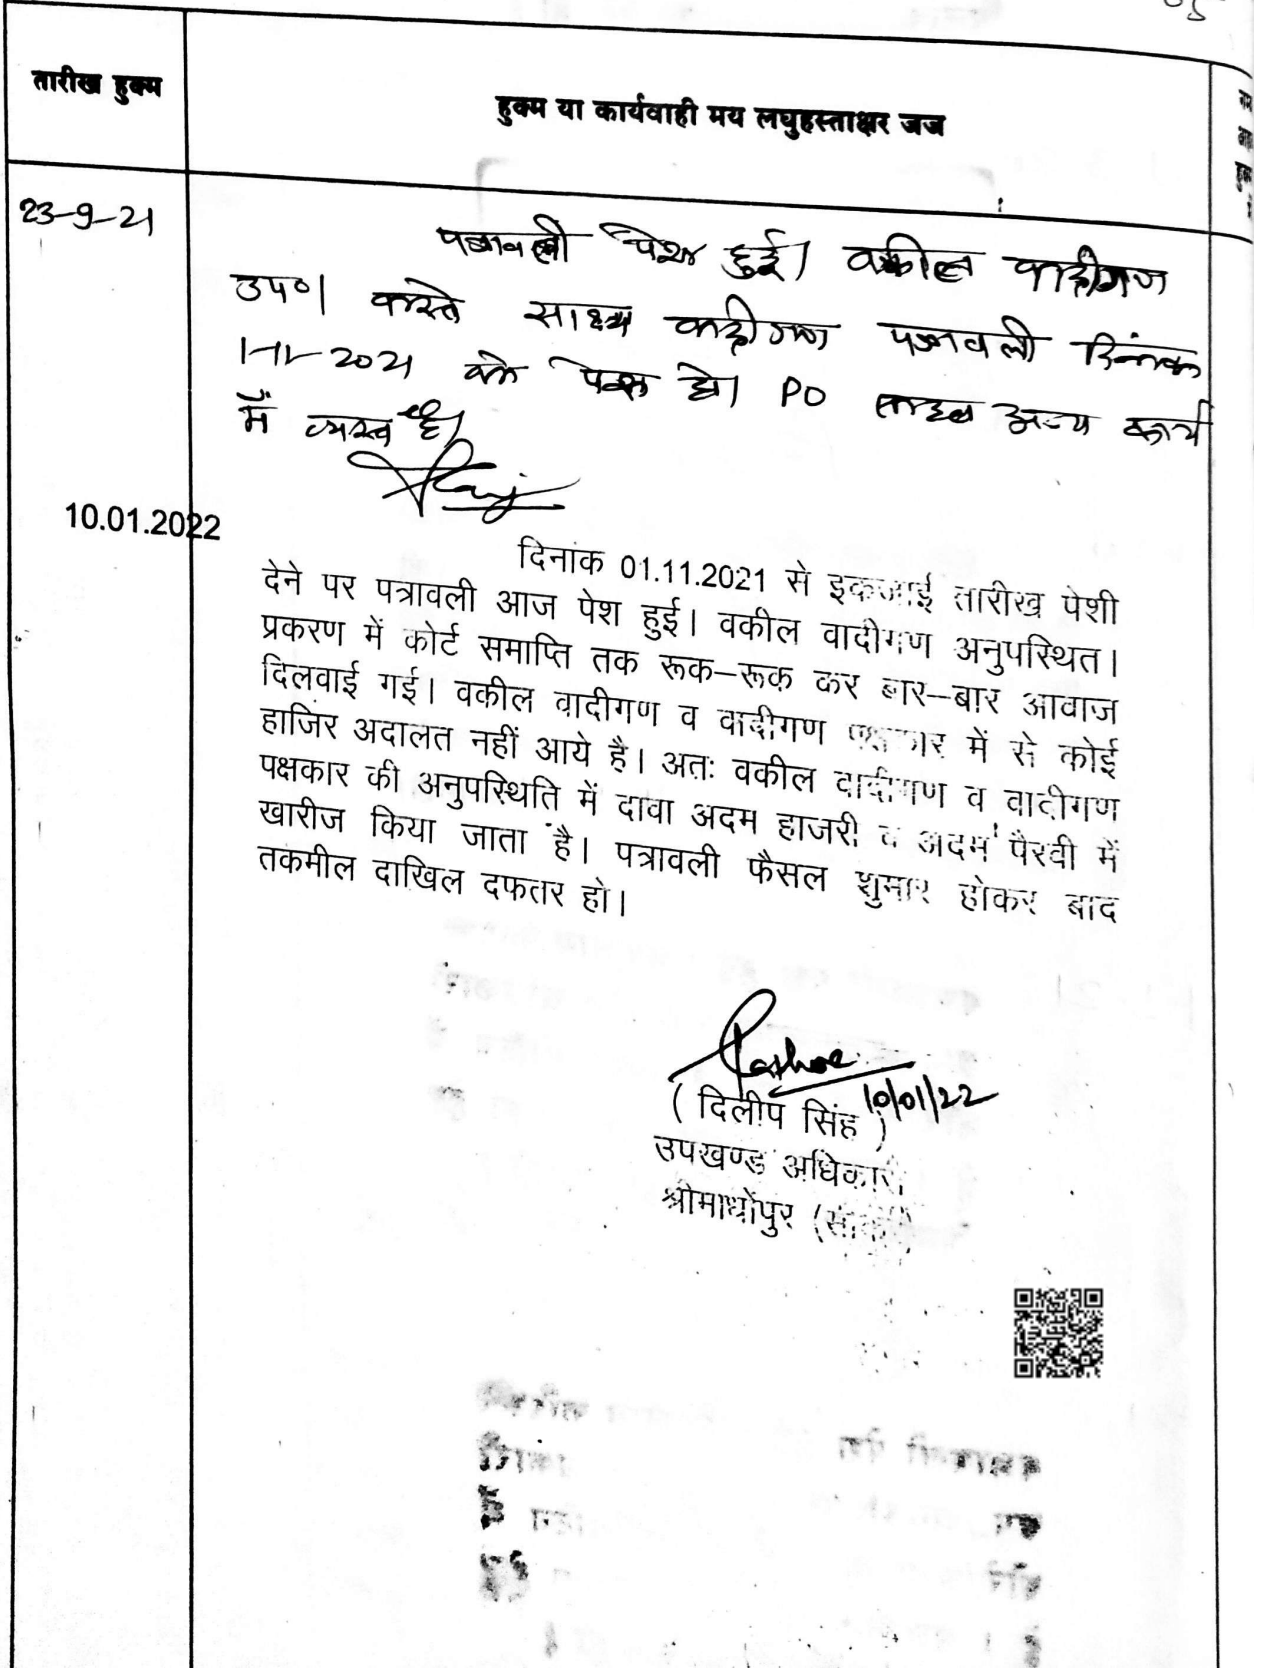 तारीख हुक्म
हुक्म या कार्यवाही मय लघुहस्ताक्षर जज
23-9-21
पत्रावली पेश हुई। वकील वादीगण
उप०। वास्ते साक्ष्य वादीगण पत्रावली दिनांक
1-11-2021 को पेश हो। PO साहब अन्य कार्य
में व्यस्त है।
10.01.2022
दिनांक 01.11.2021 से इकजाई तारीख पेशी
देने पर पत्रावली आज पेश हुई। वकील वादीगण अनुपस्थित।
प्रकरण में कोर्ट समाप्ति तक रूक–रूक कर बार–बार आवाज
दिलवाई गई। वकील वादीगण व वादीगण पक्षकार में से कोई
हाजिर अदालत नहीं आये है। अतः वकील वादीगण व वादीगण
पक्षकार की अनुपस्थिति में दावा अदम हाजरी व अदम पैरवी में
खारीज किया जाता है। पत्रावली फैसल शुमार होकर बाद
तकमील दाखिल दफतर हो।
10/01/22
( दिलीप सिंह )
उपखण्ड अधिकारी
श्रीमाधोपुर (सीकर)